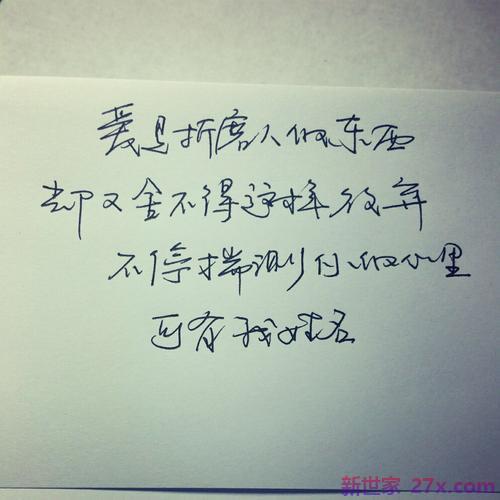 爱是折磨人的东西
却又舍不得这样放弃
不停揣测你的心里
可有我姓名
新世家 27x.com